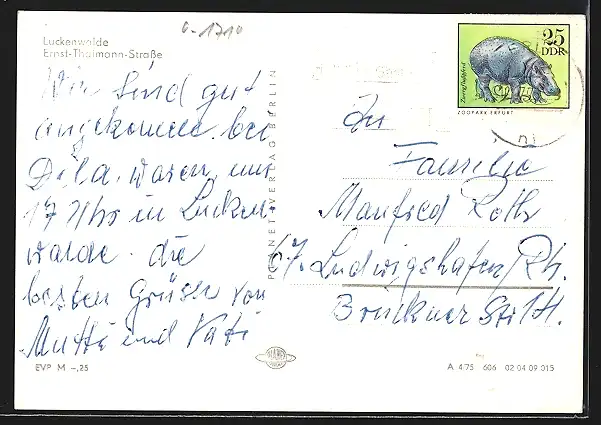 6-1710
Luckenwalde
Ernst-Thälmann-Straße
25
DDR
Zwergflußpferd
ZOOPARK ERFURT
Wir sind gut
angekommen. bei
Dela. waren um
17 Uhr in Lucken-
walde. die
besten Grüße von
Mutti und Vati
PLANET-VERLAG BERLIN
An
Familie
Manfred Roth
67 Ludwigshafen/Rh.
Bruckner Str.
EVP M -,25
PLANET
A 4/75 606 02 04 09 015